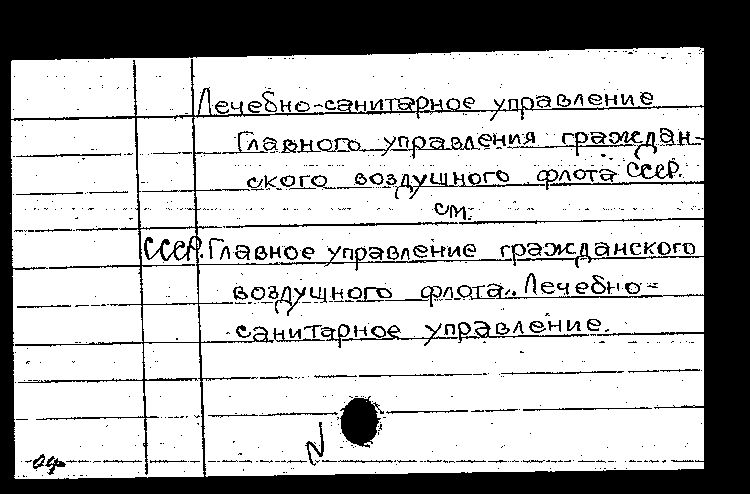 Лечебно-санитарное управление
Главного управления граждан-
ского воздушного флота СССР.
см:
СССР. Главное управление гражданского
воздушного флота.. Лечебно-
санитарное управление.